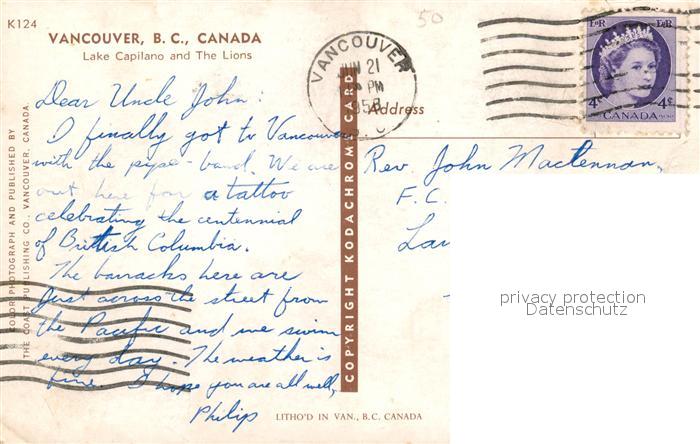 K124
50
VANCOUVER, B. C., CANADA
Lake Capilano and The Lions
VANCOUVER
JUN 21
PM
1958
B. C.
E II R E II R
4c 4c
CANADA
Address
Dear Uncle John:
I finally got to Vancouver
with the pipe-band. We are
out here for a tattoo
celebrating the centennial
of British Columbia.
The barracks here are
just across the street from
the Pacific and we swim
every day. The weather is
fine. I hope you are all well,
Philip
Rev. John MacLennan,
F. C.
Lau
COLOR PHOTOGRAPH AND PUBLISHED BY
THE COAST PUBLISHING CO., VANCOUVER, CANADA
COPYRIGHT KODACHROME CARD
LITHO'D IN VAN., B.C. CANADA
privacy protection
Datenschutz